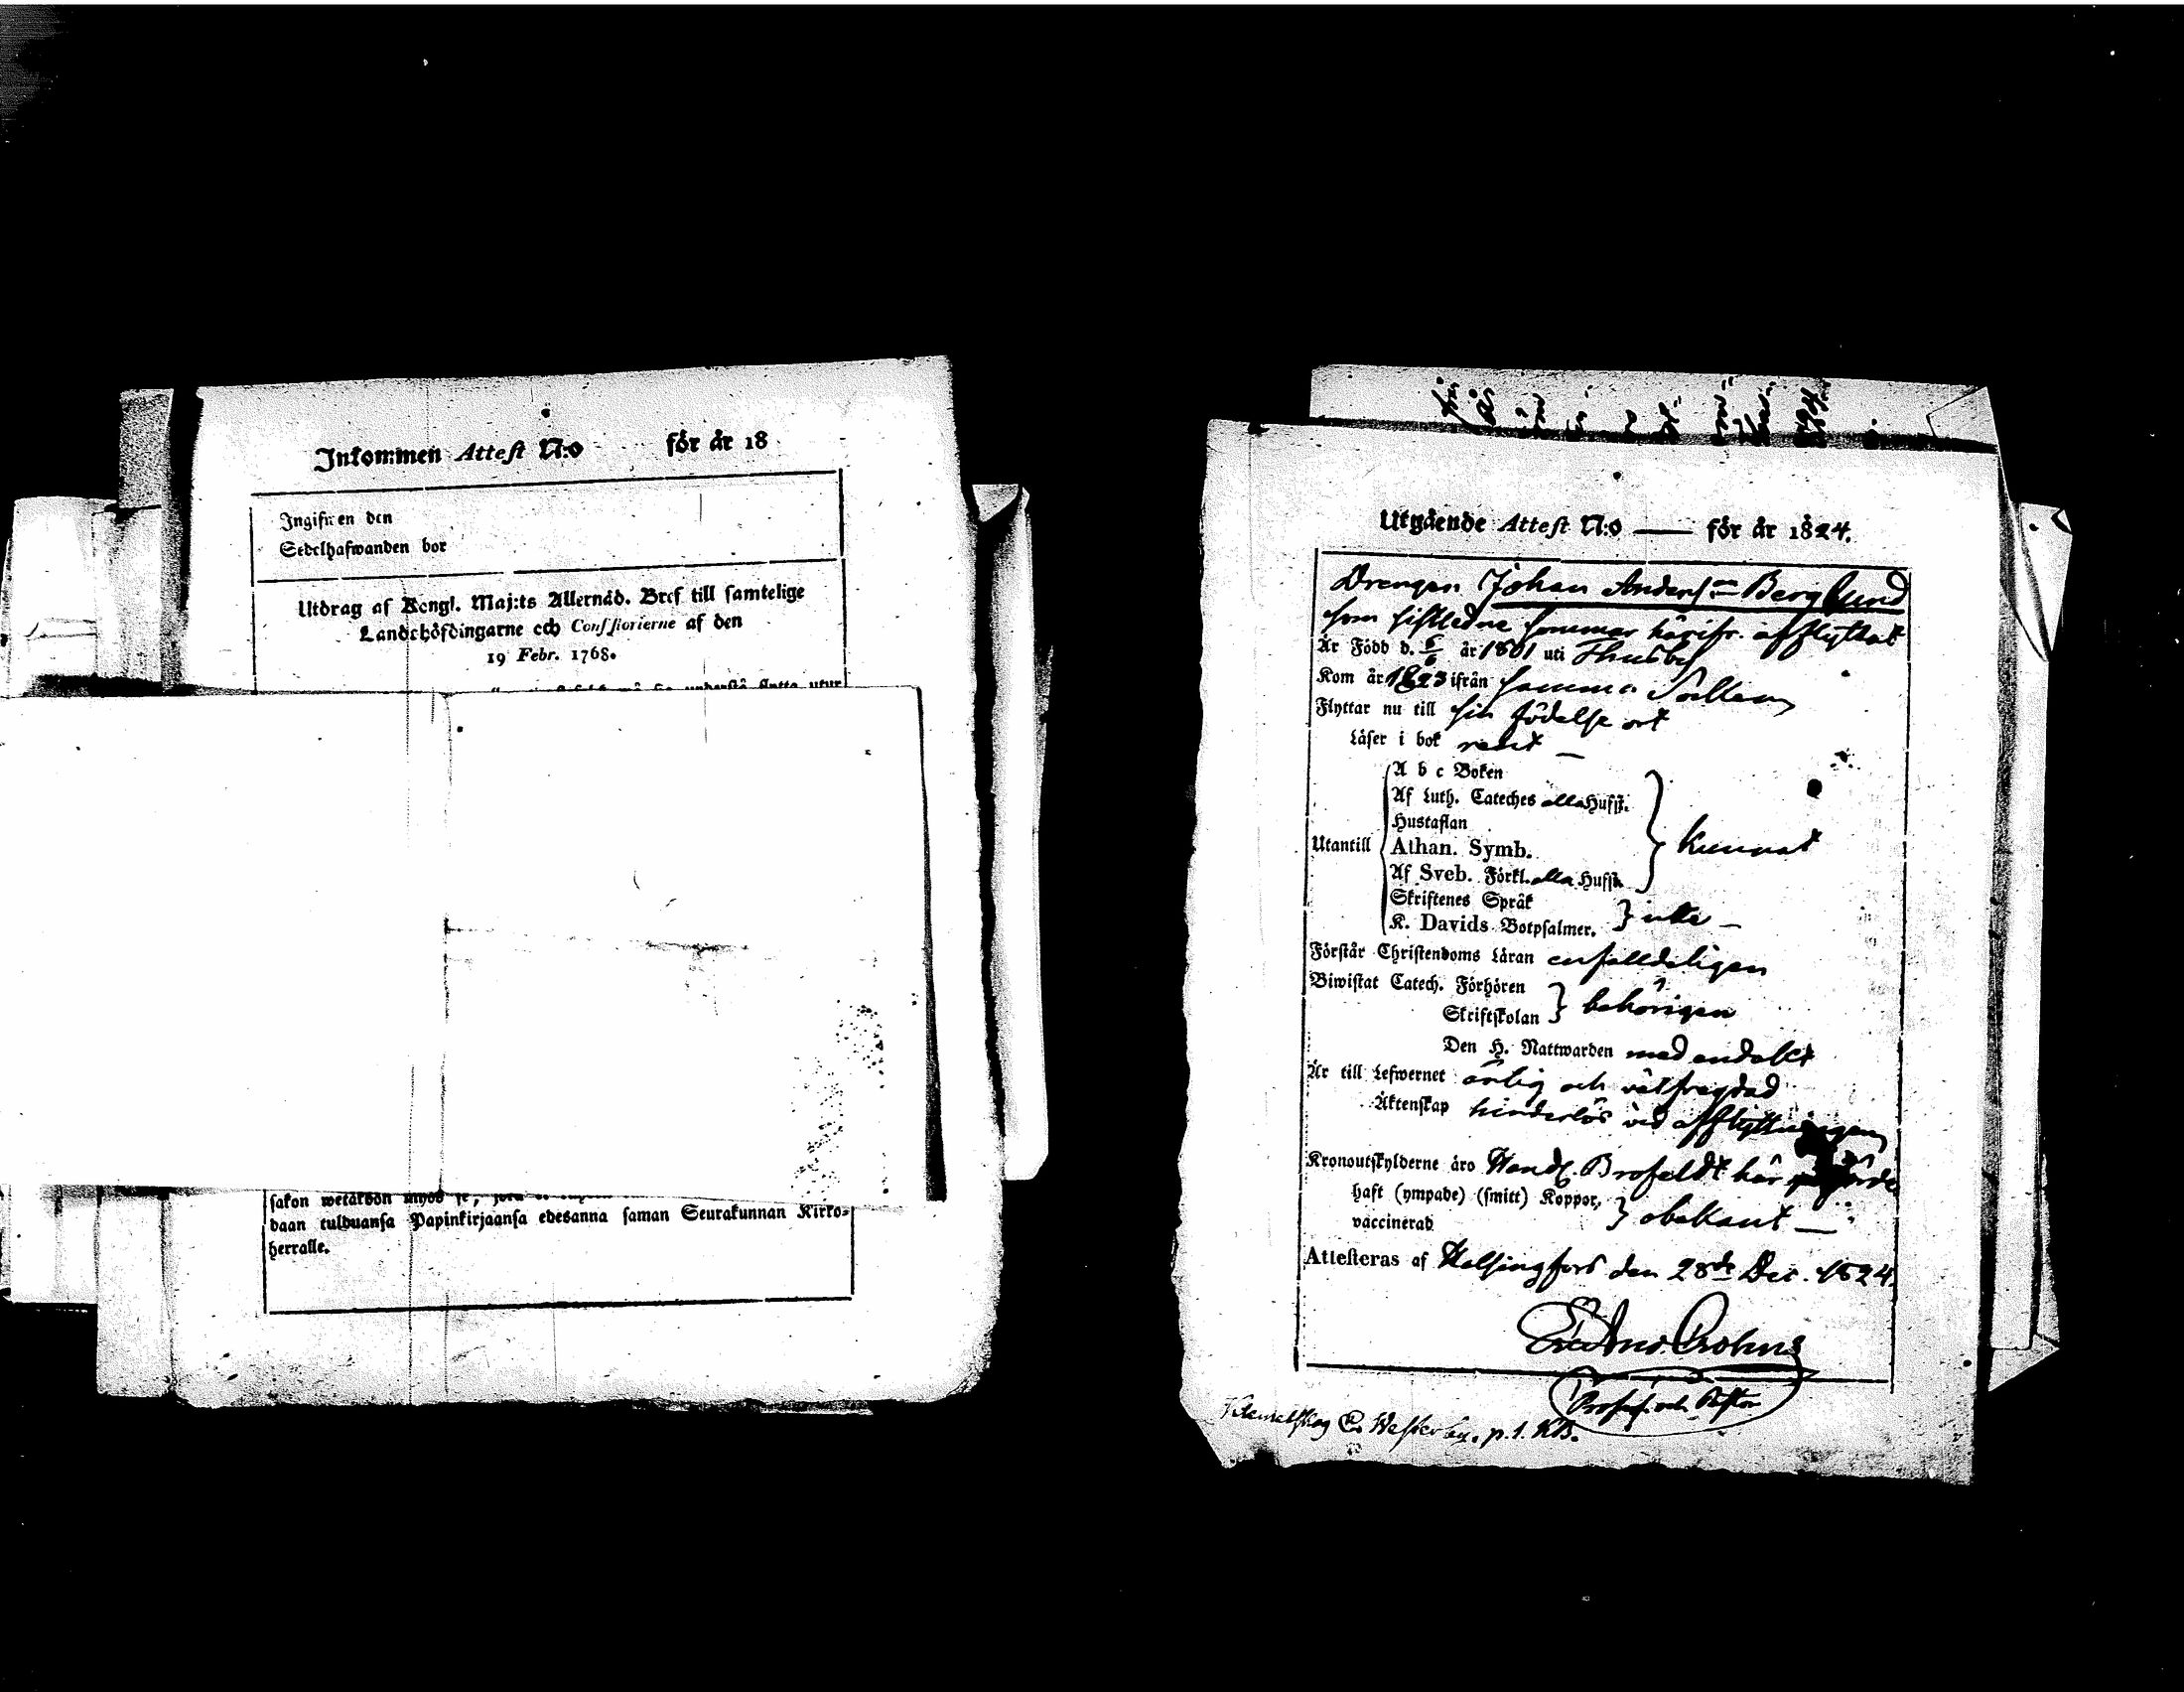 Inkommen Attest N:o för år 18
Ingifwen den
Sedelhafwanden bor
Utdrag af Kongl. Maj:ts Allernåd. Bref till samtelige
Landshöfdingarne och Consistorierne af den
19 Febr. 1768.
flytta utur
sakon wetåkön myös se,
daan tulduansa Papinkirjaansa edesanna saman Seurakunnan Kirko-
herralle.
Utgående Attest N:o — för år 1824.
Drengen Johan Anderss:n Berglund
som sistledne sommar härifr. afflyttat
Är Född d. 6/6 år 1801 uti Thusby
Kom år 1823 ifrån samma Socken
Flyttar nu till sin födelse ort
Läser i bok rent —
A b c Boken
Af Luth. Cateches alla Hufst.
Hustaflan
Utantill Athan. Symb. kunnat
Af Sveb. Förkl. alla Hufst.
Skriftenes Språk
K. Davids Botpsalmer. icke —
Förstår Christendoms Läran enfalldeligen
Biwistat Catech. Förhören
Skriftskolan behörigen
Den H. Nattwarden med andakt
Är till Lefwernet ärlig och välfregdad
Äktenskap hinderlös vid afflyttningen
Kronoutskylderne äro Handl. Brofeldt här
haft (ympade) (smitt) Koppor,
vaccinerad obekant —
Attesteras af Helsingfors den 28de Dec. 1824.
Crohns
Profess. och Pastor
Westerby. p. 1. KB.